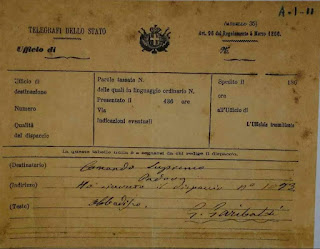 A-1-11
TELEGRAFI DELLO STATO
Ufficio di
Art. 26 del Regolamento 4 Marzo 1866.
N.
Ufficio di
destinazione
Numero
Qualità
del dispaccio
Parole tassate N.
delle quali in linguaggio ordinario N.
Presentato il 186 ore
Via
Indicazioni eventuali
Spedito il 186
ore
all'Ufficio di
L'Ufficiale trasmittente
(Destinatario) Comando Supremo
Padova
(Indirizzo) Ho ricevuto il dispaccio N° 1073
(Testo) Obbedisco.
G. Garibaldi